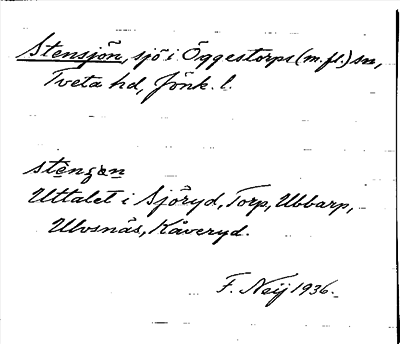 Stensjön, sjö i Öggestorps (m.fl.) sn,
Tveta hd, Jönk. l.
stènʒən
Uttalet i Sjöryd, Torp, Ubbarp,
Ulvsnäs, Kåveryd.
F. Neij 1936.